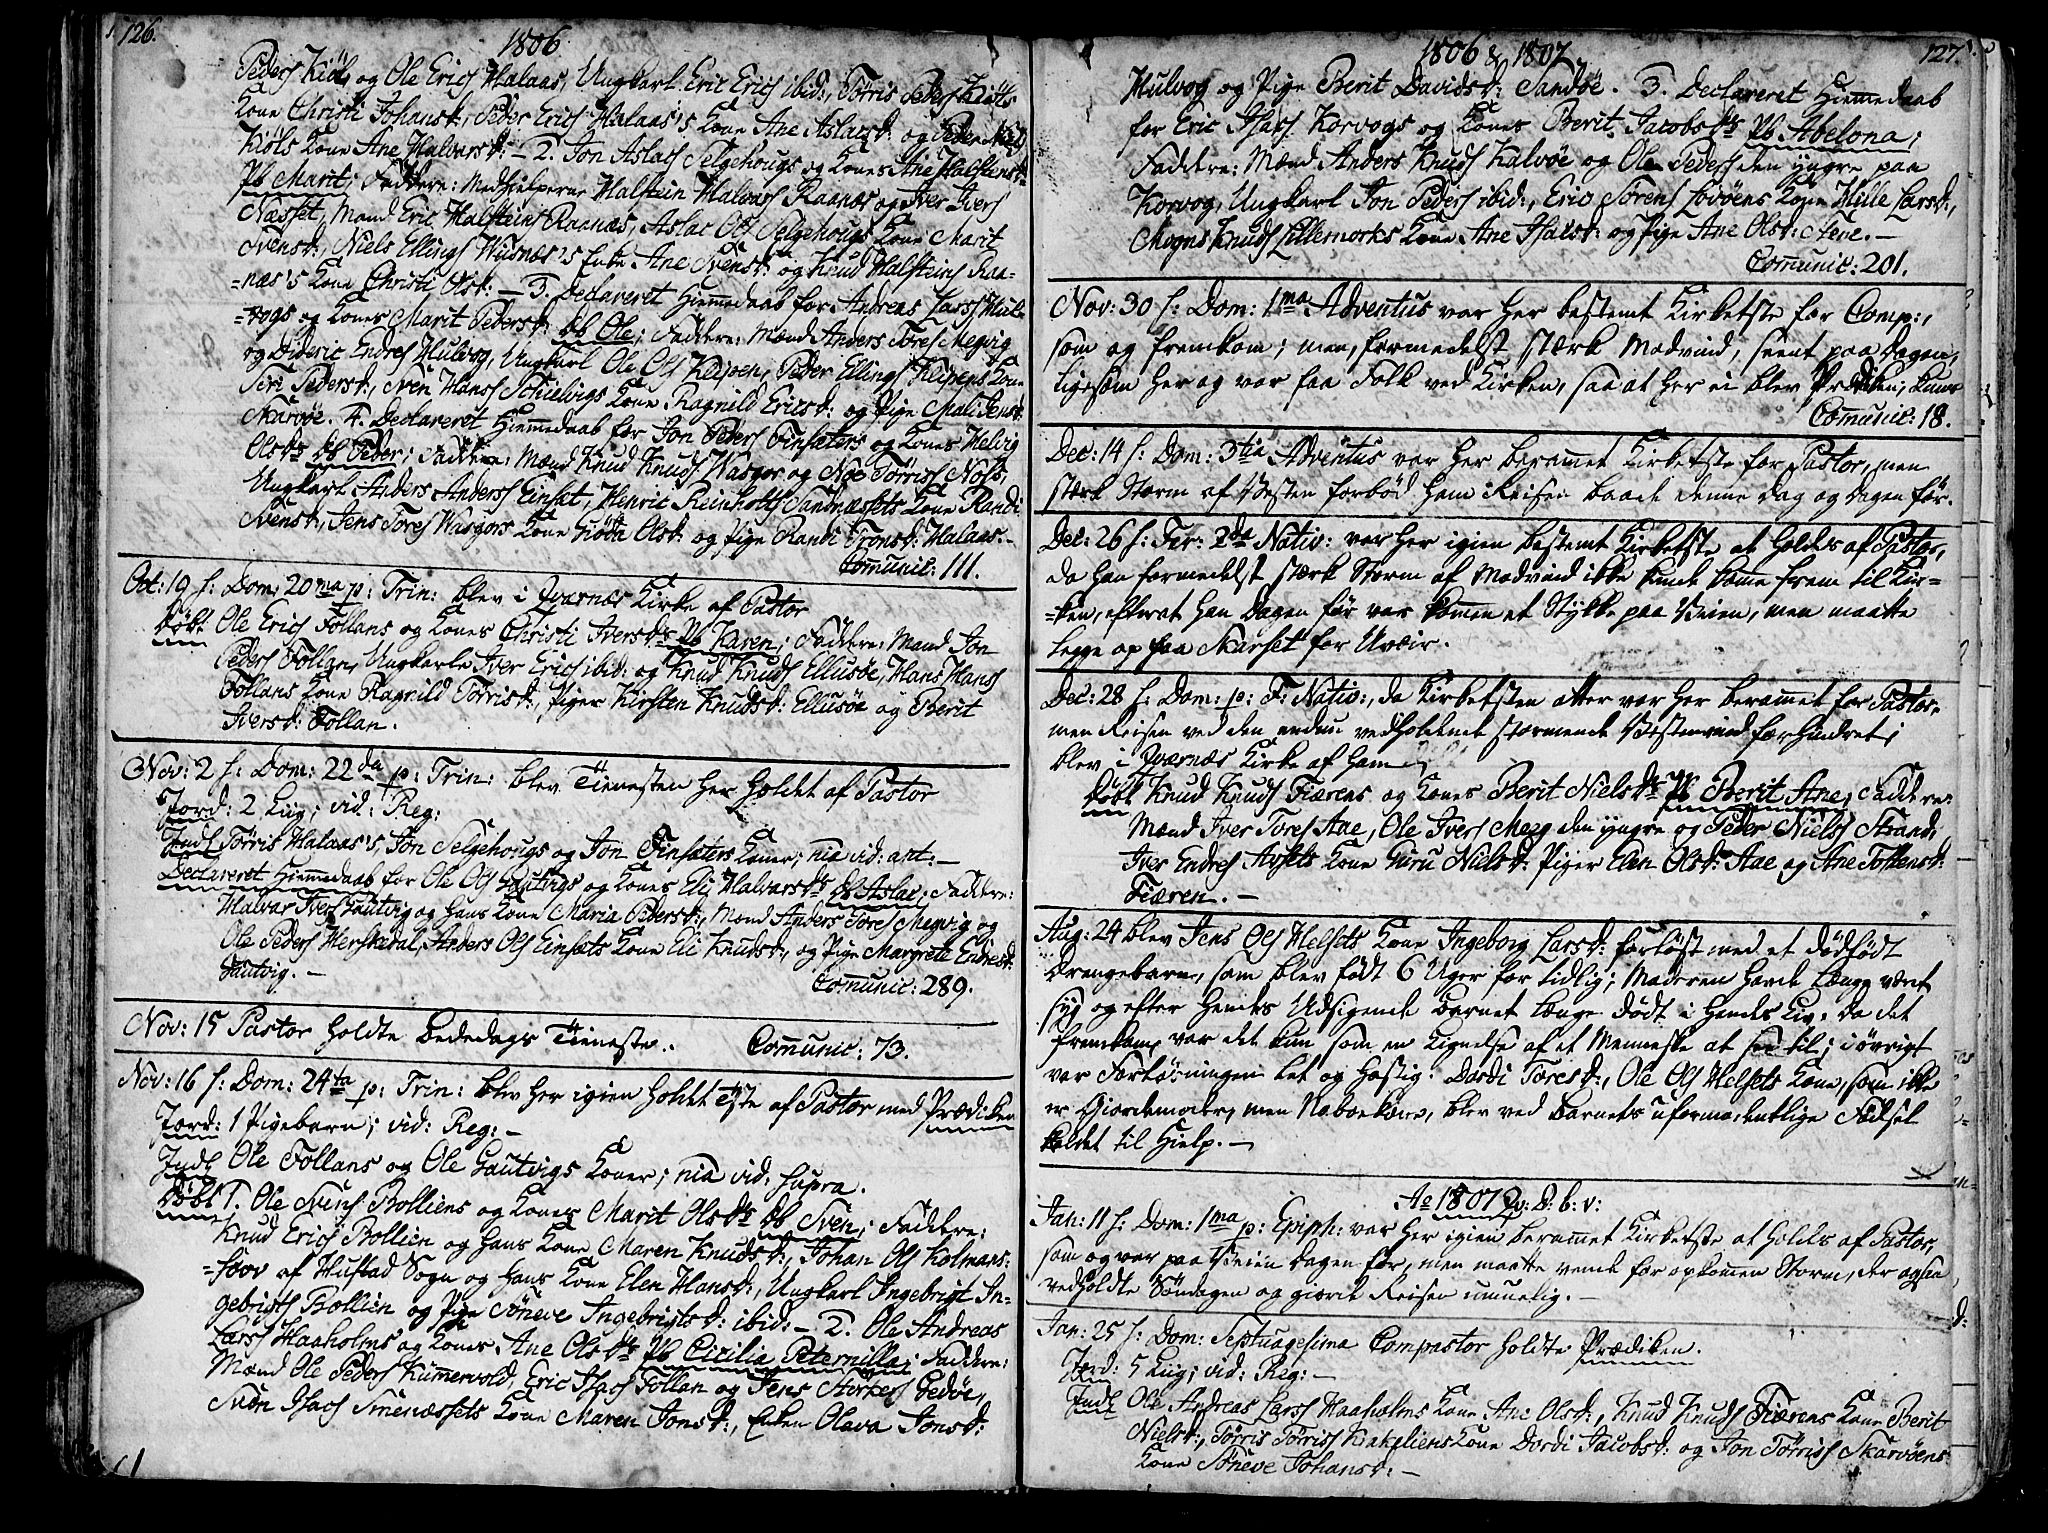 126.
1806
Peders Kiöls og Ole Erics Halaas, Ungkarl Eric Erics ibid:, Törris Peders Kiöls
Kone Christi Johansd:, Peder Erics Halaas's Kone Ane Aslacsd: og Peder
Kiöls Kone Ane Halvarsd: – 2. Jon Aslacs Selgehougs og Kones Ane Halsteinsd:
Pb Marit; Faddere: Medhielperne Halstein Halvars Raanæs og Iver Ivers
Næsset, Mænd Eric Halsteins Raanæs, Aslac Ols Selgehougs Kone Marit
Svensd:, Niels Ellings Wusnæs's Enke Ane Svensd: og Knud Halsteins Raa-
=næs's Kone Christi Olsd: – 3. Declareret Hiemmedaab for Andreas Larss Hul-
=vogs og Kones Marit Pedersd: Db Ole; Faddere: Mænd Anders Tores Megvig
og Dideric Endres Hulvog, Ungkarl Ole Ols Kleipen, Peder Ellings Kleipens Kone
Siri Pedersd:, Sven Hans's Schielvigs Kone Ragnild Ericsd: og Pige Mali Jensd:
Skarvöe. 4. Declareret Hiemmedaab for Jon Peders Finsæters og Kones Helvig
Olsds Db Peder; Faddere: Mænd Knud Knuds Wasgor og Noe Törriss Nose,
Ungkarl Anders Anderss Einset, Henric Reinholts Sandnæssets Kone Randi
Svensd:, Jens Tores Wasgors Kone Giöda Olsd: og Pige Randi Tronsd: Halaas. –
Comunic: 111.
Oct: 19 f: Dom: 20ma p: Trin: blev i Qvarnæs Kirke af Pastor
Döbt Ole Erics Follans og Kones Christi Iversds Pb Karen; Faddere: Mænd Jon
Peders Follan, Ungkarle Iver Erics ibid: og Knud Knuds Ellusöe, Hans Hanss
Follans Kone Ragnild Törrisd:, Piger Kirsten Knudsd: Ellusöe og Berit
Iversd: Follan.
Nov: 2 f: Dom: 22da p: Trin: blev Tienesten her holdet af Pastor
Jord: 2 Liig; vid: Reg:
Indl Törris Halaas's, Jon Selgehougs og Jon Finsæters Koner; nia vid: ant: –
Declareret Hiemmedaab for Ole Ols Gautvigs og Kones Eli Halvarsds Db Aslac; Faddere:
Halvar Ivers Gautvig og hans Kone Maria Pedersd:, Mænd Anders Tores Megvig og
Ole Peders Herskedal, Anders Ols Einsets Kone Eli Knudsd:, og Pige Margrete Endresd:
Gautvig. –
Comunic: 289.
Nov: 15 Pastor holdte Bededags Tieneste. Comunic: 73.
Nov: 16 f: Dom: 24ta p: Trin: blev her igien holdet Tste af Pastor med Prædiken
Jord: 1 Pigebarn; vid: Reg: –
Indl Ole Follans og Ole Gautvigs Koner; nia vid: supra.
Döbt 1. Ole Svens Bolliens og Kones Marit Olsds Db Sven; Faddere:
Knud Erics Bollien og hans Kone Maren Knudsd:, Johan Ols Kolmans-
=skov af Hustad Sogn og hans Kone Elen Hansd:, Ungkarl Ingebrigt In-
gebrigts Bollien og Pige Söneve Ingebrigtsd: ibid: – 2. Ole Andreas
Larss Haaholms og Kones Ane Olsds Pb Cicilia Peternilla; Faddere:
Mænd Ole Peders Kumervold, Eric Isacs Follan og Jens Storkers Gedöe,
Sven Isacs Smenæssets Kone Maren Jonsd:, Enken Olava Jonsd:
127.
1806 & 1807
Hulvog og Pige Berit Davidsd: Sandöe. 3. Declareret Hiemmedaab
for Eric Isacs Korvogs og Kones Berit Jacobsds Pb Abelona;
Faddere: Mænd Anders Knuds Kalvöe og Ole Peders den yngre paa
Korvog, Ungkarl Jon Peders ibid:, Eric Sörens Lövöens Kone Mille Larsd:,
Mogns Knuds Lillemorks Kone Ane Isacsd: og Pige Ane Olsd: Stene. –
Comunic: 201.
Nov: 30 f: Dom: 1ma Adventus var her bestemt Kirketste for Comp:,
som og fremkom; men, formedelst stærk Modvind, seent paa Dagen,
ligesom her og var faa Folk ved Kirken, saa at her ei blev Prædiken, kuns
Comunic: 18.
Dec: 14 f: Dom: 3tia Adventus var her beramet Kirketste for Pastor, men
stærk Storm af Vesten forbød ham Reisen baade denne Dag og Dagen før.
Dec: 26 f: Fer: 2da Nativ: var her igien bestemt Kirketste at holdes af Pastor,
da han formedelst stærk Storm af Modvind ikke kunde kome frem til Kir-
=ken, efterat han Dagen før var komen et Stykke paa Veien, men maatte
legge op paa Skarset for Uveir.
Dec: 28 f: Dom: p: F: Nativ:, da Kirketsten atter var her beramet for Pastor,
men Reisen ved den endnu vedholdende stormende Vestenvind forhindret;
blev i Qvarnæs Kirke af ham
Döbt Knud Knuds Fiærens og Kones Berit Nielsds Pb Berit Ane; Faddere:
Mænd Iver Tores Aae, Ole Ivers Meeg den yngre og Peder Niels Strand,
Iver Endres Axsets Kone Guru Nielsd: Piger Elen Olsd: Aae og Ane Tostensd:
Fiæren. –
Aug: 24 blev Jens Ols Helsets Kone Ingeborg Larsd: forløst med et dødfødt
Drengebarn, som blev født 6 Uger for tidlig; Moderen havde længe været
syg og efter hendes Udsigende Barnet længe dødt i hendes Liv. da det
fremkom var det kun som en Lignelse af et Menneske at see til; i øvrigt
var Forløsningen let og hastig. Dordi Toresd:, Ole Ols Helsets Kone, som ikke
er Giordemoder, men Naboekone, blev ved Barnets uformodentlige Fødsel
kaldet til Hielp. –
Ao 1807 Qv: D: b: v:
Jan: 11 f: Dom: 1ma p: Epiph: var her igien beramet Kirketste at holdes af Pastor,
som og var paa Veien Dagen før, men maatte vende for opkomen Storm, der ogsaa
vedholdte Søndagen og giorde Reisen umuelig. –
Jan: 25 f: Dom: Septuagesima Compastor holdte Prædiken.
Jord: 5 Liig; vid: Reg: –
Indl Ole Andreas Larss Haaholms Kone Ane Olsd:, Knud Knuds Fiærens Kone Berit
Nielsd:, Törris Törriss Krakeliens Kone Dordi Jacobsd: og Jon Törriss Skarvöens
Kone Söneve Johansd: –